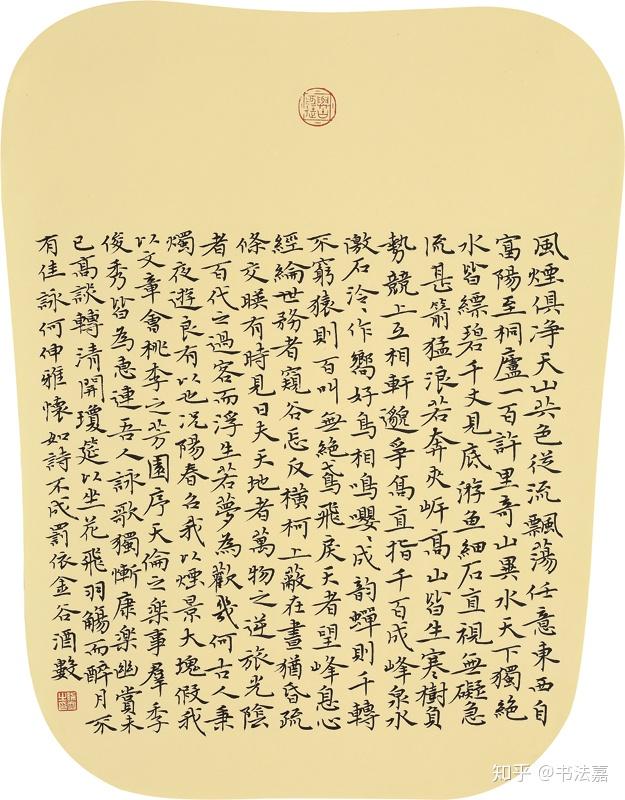 風煙俱淨天山共色從流飄蕩任意東西自
富陽至桐廬一百許里奇山異水天下獨絕
水皆縹碧千丈見底游魚細石直視無礙急
流甚箭猛浪若奔夾岸高山皆生寒樹負
勢競上互相軒邈爭高直指千百成峰泉水
激石泠、作響好鳥相鳴嚶、成韵蟬則千轉
不窮猿則百叫無絕鳶飛戾天者望峰息心
經綸世務者窺谷忘反橫柯上蔽在晝猶昏疏
條交暎有時見日夫天地者萬物之逆旅光陰
者百代之過客而浮生若夢為歡幾何古人秉
燭夜遊良有以也況陽春召我以煙景大塊假我
以文章會桃李之芳園序天倫之樂事羣季
俊秀皆為惠連吾人詠歌獨慚康樂幽賞未
已高談轉清開瓊筵以坐花飛羽觴而醉月不
有佳詠何伸雅懷如詩不成罰依金谷酒數
知乎 @书法嘉